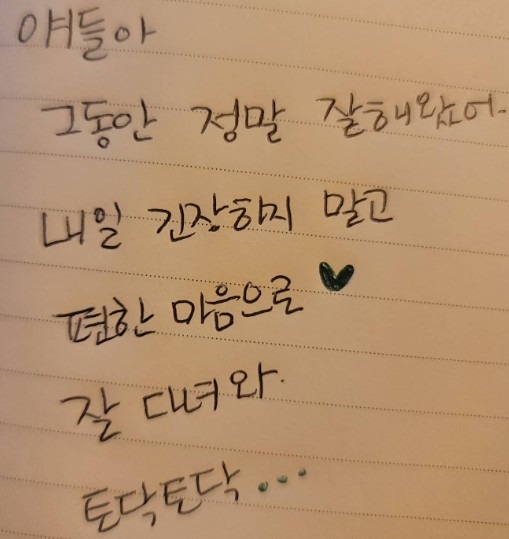 얘들아
그동안 정말 잘해왔어.
내일 긴장하지 말고
편한 마음으로 ♥
잘 다녀와.
토닥토닥...